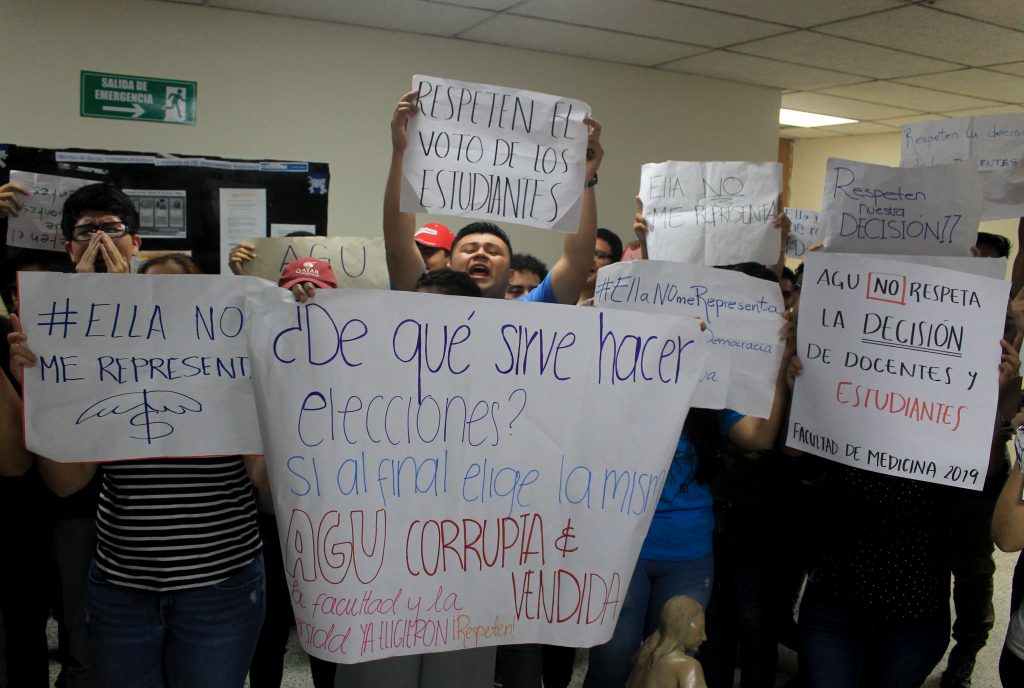 SALIDA DE
EMERGENCIA
RESPETEN EL
VOTO DE LOS
ESTUDIANTES
ELLA NO
ME REPRESENTA
Respeten la decisión
Respeten
nuestra
DECISIÓN??
AGU
QATAR
#ELLA NO
ME REPRESENT
$
¿De qué sirve hacer
elecciones?
Si al final elige la mism
AGU CORRUPTA &
VENDIDA
la facultad y la
YA ELIGIERON ¡Respeten!
#EllaNOmeRepresenta
Democracia
AGU NO RESPETA
LA DECISIÓN
DE DOCENTES Y
ESTUDIANTES
FACULTAD DE MEDICINA 2019